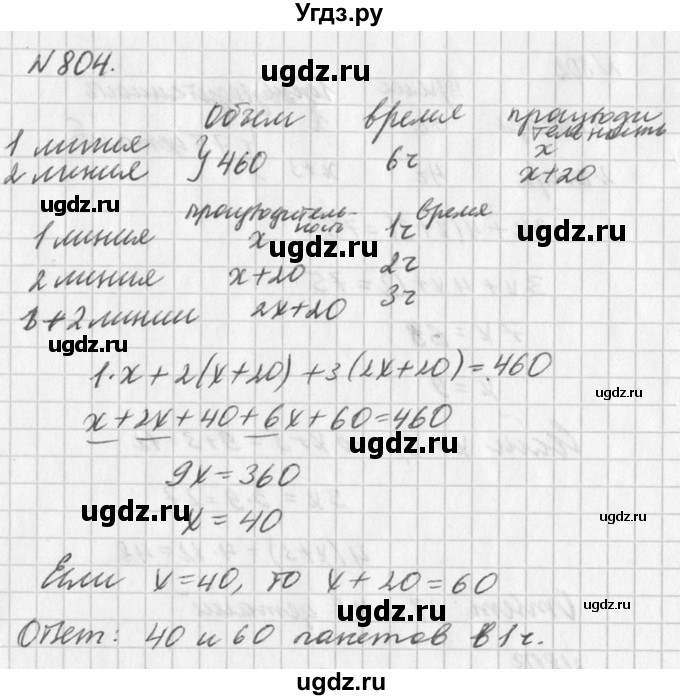 Угдз.ру
N 804.
ugdz.ru
объем время производи
тельность
1 линия } 460 6ч x
2 линия x+20
ugdz.ru
ugdz.ru ugdz.ru
производитель-
ность время
1 линия x 1ч
ugdz.ru
2 линия x+20 2ч
1+2 линии 2x+20 3ч
ugdz.ru
1·x+2(x+20)+3(2x+20)=460
ugdz.ru
x+2x+40+6x+60=460
ugdz.ru
9x=360
ugdz.ru
x=40
ugdz.ru
Если x=40, то x+20=60
ugdz.ru
ugdz.ru
Ответ: 40 и 60 пакетов в 1ч.
ugdz.ru
ugdz.ru